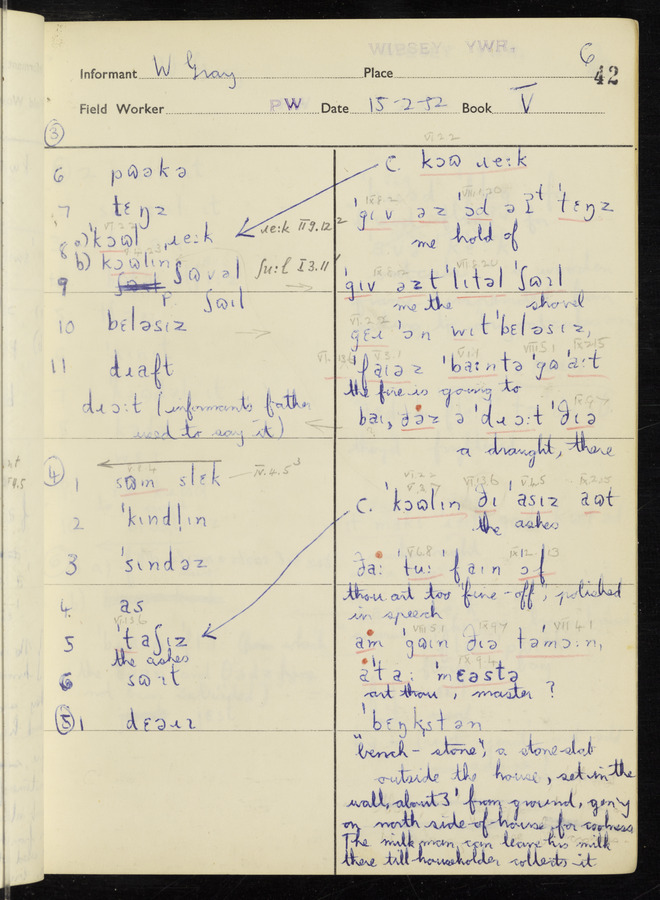 WIBSEY YWR.
6
Informant W Gray Place 42
Field Worker PW Date 15-2-52 Book V
③
6 pɷəkə
7 tɛŋz
8 a) 'kɔɷl ˌɹe:k ɹe:k II 9.12
b) kɔɷlin'
9 ʃɷvəl ʃu:l I 3.11
P. ʃɷɪl
10 bɛləsɪz
11 dɹaft
dɹɔ:t (informants father
used to say it)
④
V.1.4
1 sɷm slɛk IV.4.5
2 'kɪndl̩ɪn
3 'sɪndəz
4 as
5 'taʃɪz
the ashes
6 sɷɪt
⑤ 1 dɛəɪɪ
VI.2.2
C. kɔɷ ɹe:k
'gɪv əz 'əd ə t 'tɛŋz
me hold of
'gɪv əz t 'lɪtəl 'ʃɷɪl
me the shovel
gɛɪ 'ən wɪt 'bɛləsɪz,
'faɪəz 'ba:ntə 'gɷ 'a:t
the fire is going to
baɪ, ðəz ə 'dɹɔ:t 'ðɪə
a draught, there
C. 'kɔɷlɪn ðɪ 'asɪz aɷt
the ashes
ða: 'tu: 'faɪn ɔf
thou art too 'fine-off', polished
in speech
am 'gɷɪn ðɪə tə'mɔ:n,
a'ta: 'mɛəstə
art thou, master ?
'bɛŋkstən
"bench-stone", a stone-slab
outside the house, set in the
wall, about 3' from ground, gen'y
on north side of house, for coolness
The milkman can leave his milk
there till householder collects it